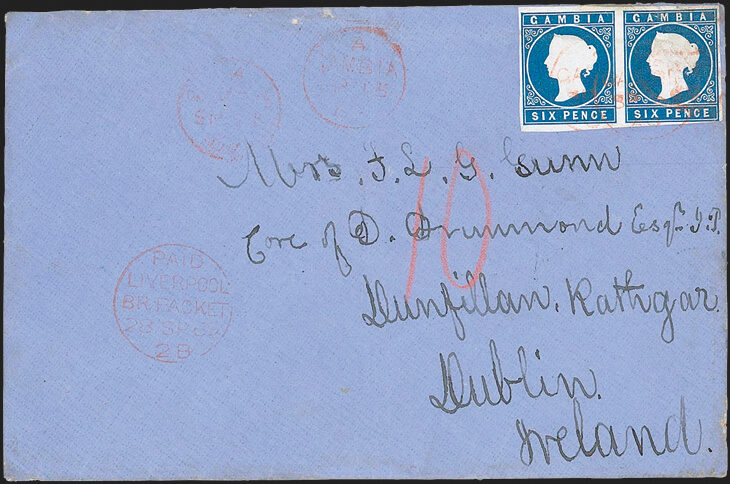 GAMBIA GAMBIA
SIX PENCE SIX PENCE
A
A
Mrs. F. L. G. Gunn
Core of D. Drummond Esqr. J.P.
10
Dunfillan. Rathgar.
Dublin.
Ireland.
PAID
LIVERPOOL
BR. PACKET
28 SP 82
2B